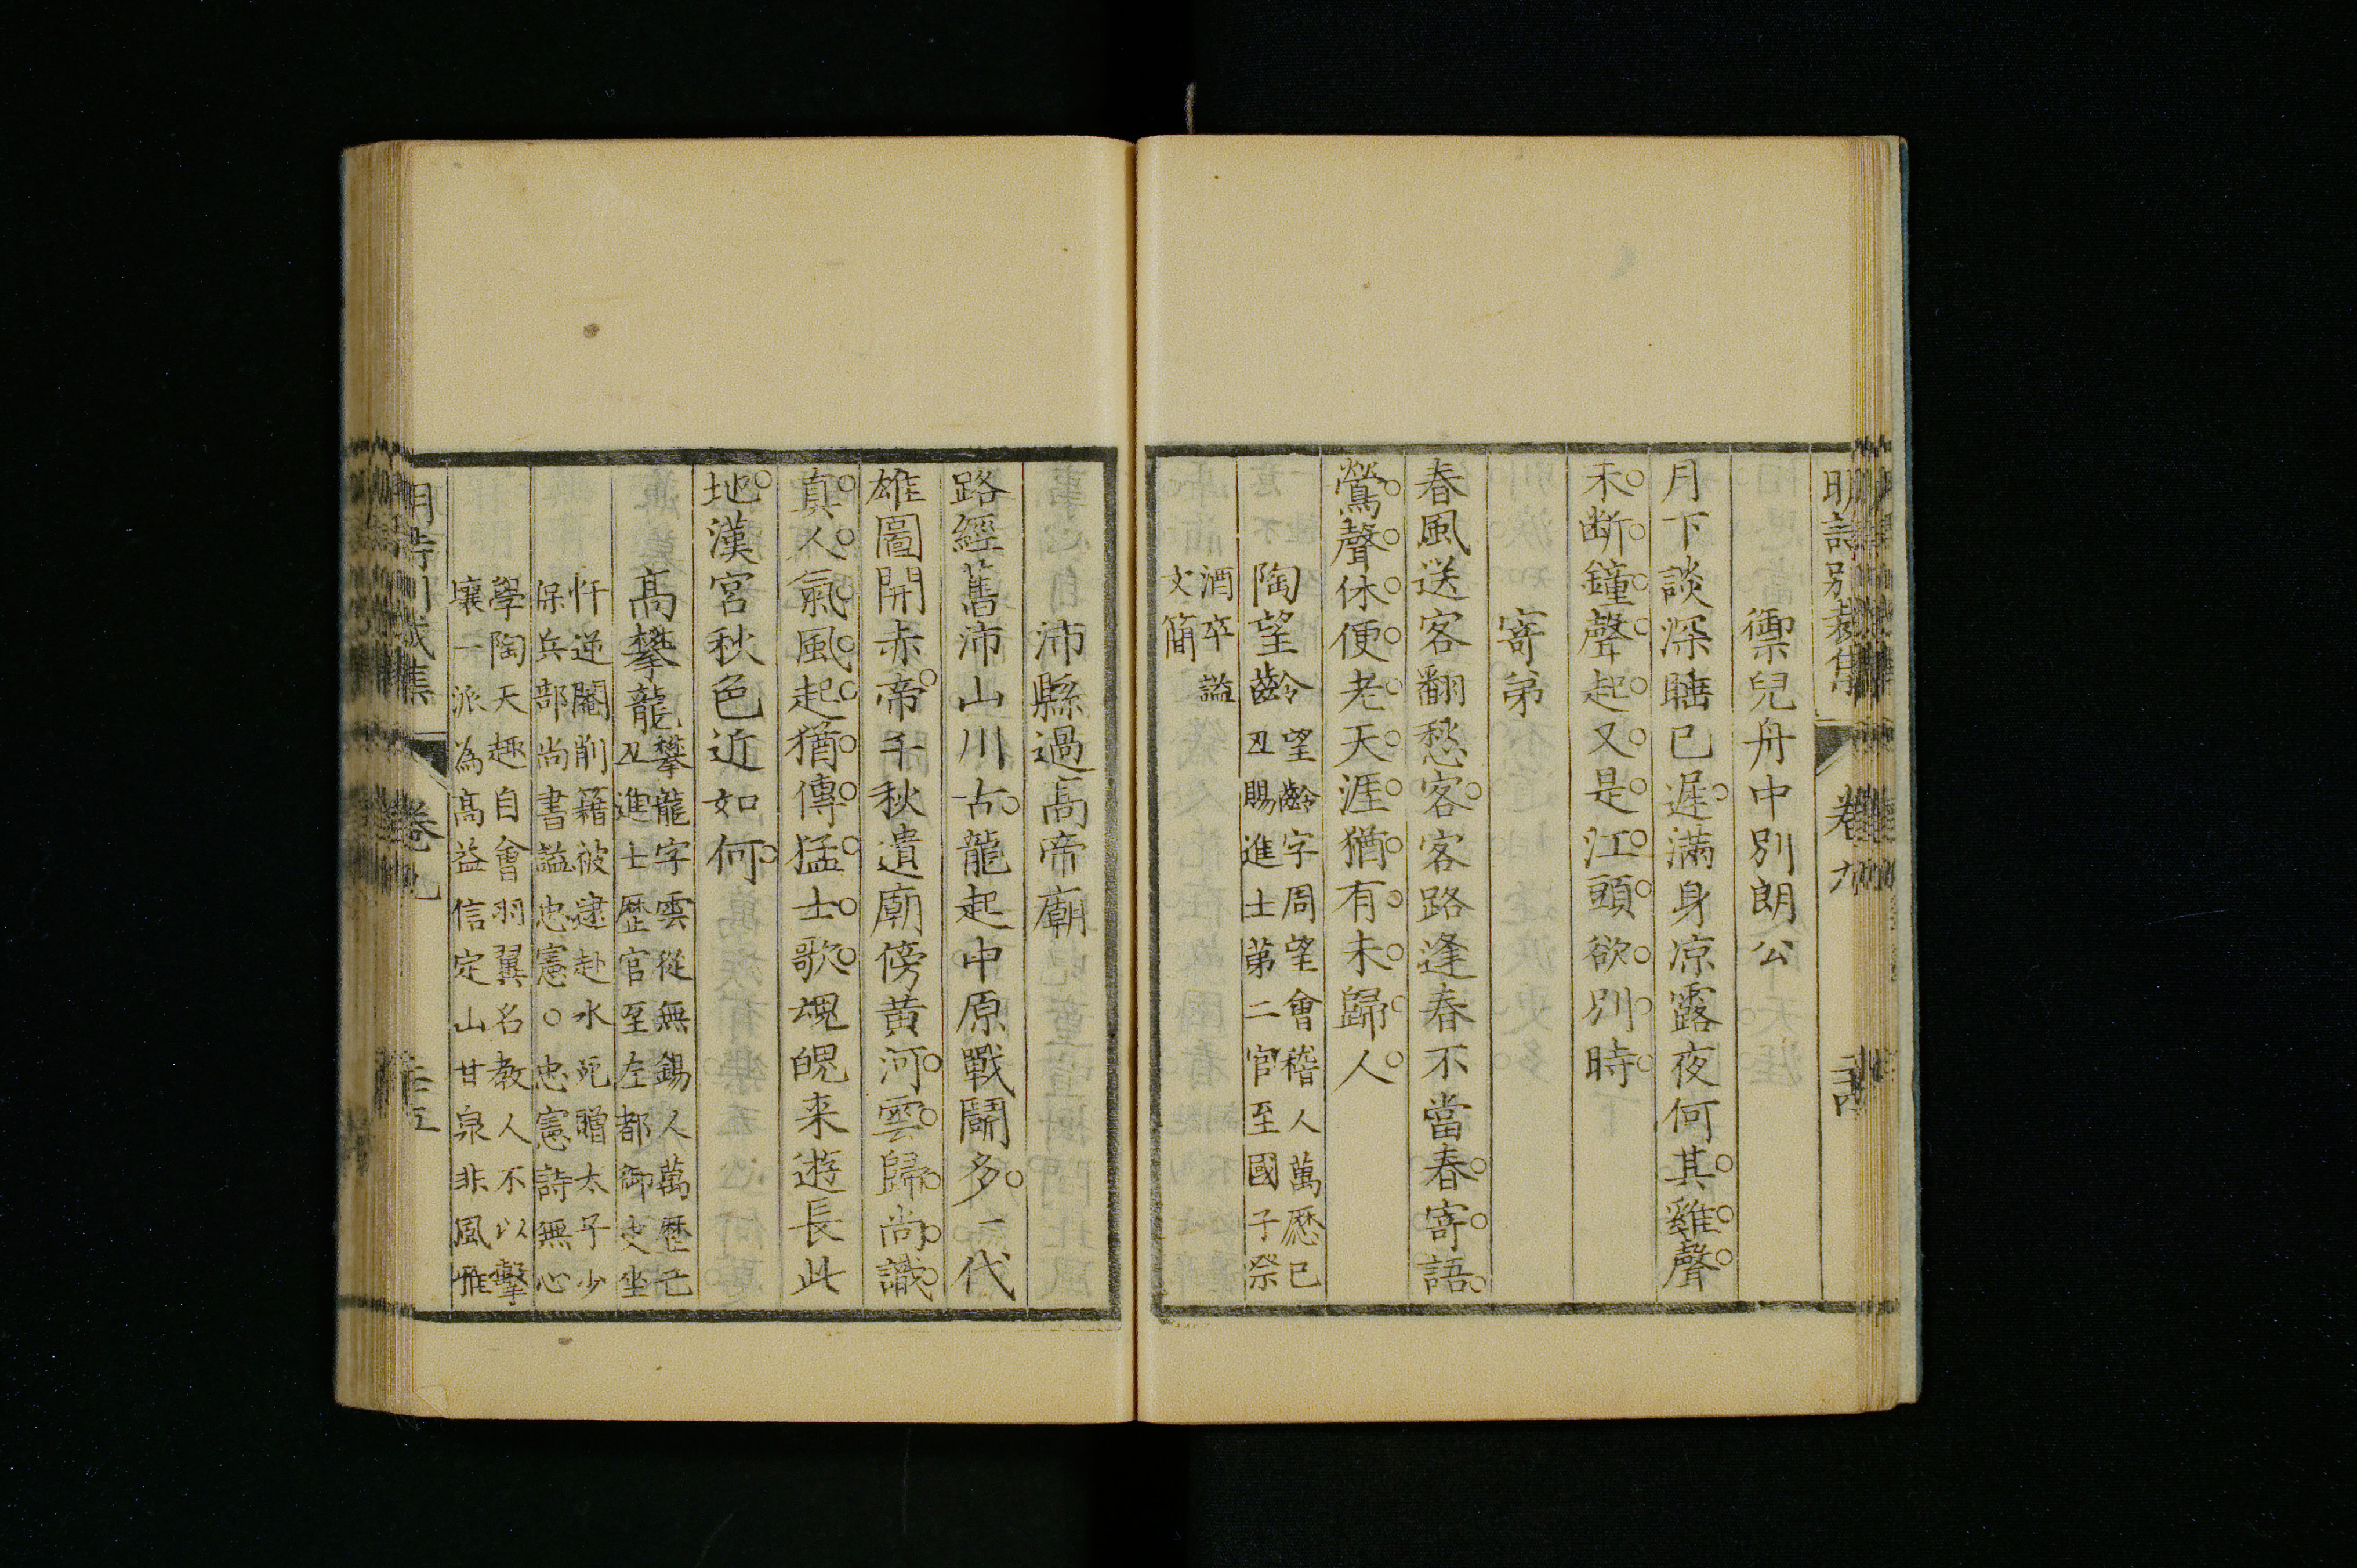 明詩別裁集 卷九
禦兒舟中別朗公
月下談深睡已遲滿身凉露夜何其雞聲
未斷鐘聲起又是江頭欲別時
寄弟
春風送客翻愁客客路逢春不當春寄語
鶯聲休便老天涯猶有未歸人
陶望齡
望齡字周望會稽人萬厯己
丑賜進士第二官至國子祭
酒卒謚
文簡
沛縣過高帝廟
路經舊沛山川古龍起中原戰鬬多一代
雄圖開赤帝千秋遺廟傍黃河雲歸尚識
真人氣風起猶傳猛士歌魂魄来遊長此
地漢宮秋色近如何
高攀龍
攀龍字雲從無錫人萬歷己
丑進士歷官至左都御史坐
忤逆閹削籍被逮赴水死贈太子少
保兵部尚書謚忠憲○忠憲詩無心
學陶天趣自會羽翼名教人不以擊
壤一派為高益信定山甘泉非風雅
明詩別裁集 卷九